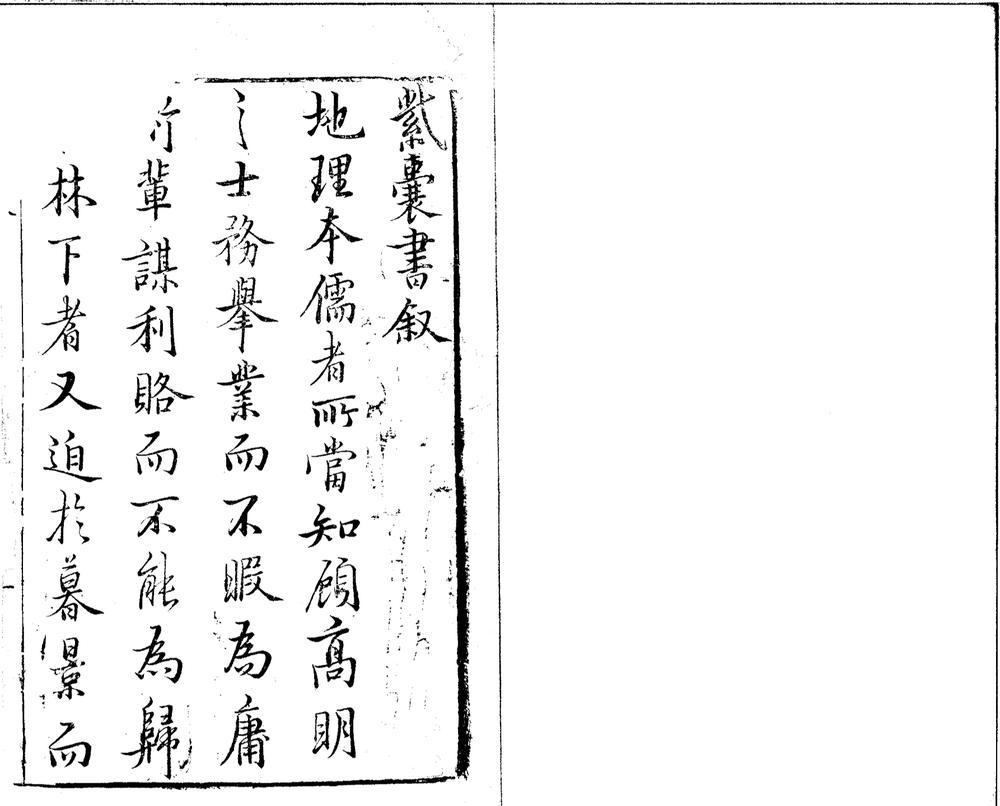 紫囊書叙
地理本儒者所當知顧髙明
之士務舉業而不暇為庸
術輩謀利賂而不能為歸
林下者又迫於暮景而